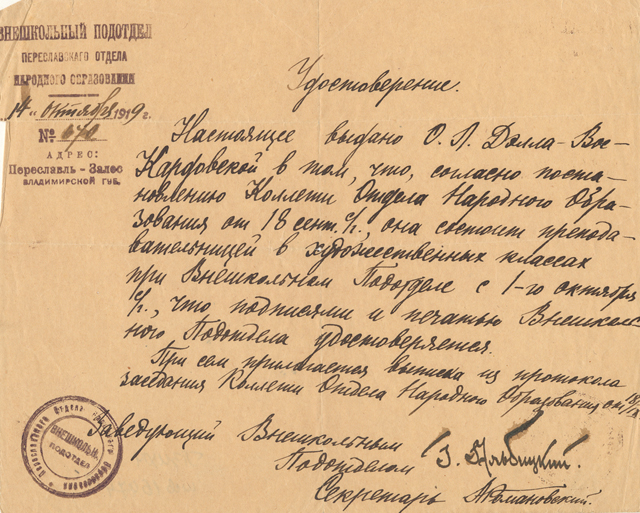 ВНЕШКОЛЬНЫЙ ПОДОТДЕЛ
ПЕРЕСЛАВСКАГО ОТДЕЛА
НАРОДНОГО ОБРАЗОВАНИЯ
14 „ октября 1919 г.
№ 670
АДРЕС:
Переславль-Залес
ВЛАДИМИРСКОЙ ГУБ.
Удостоверение.
Настоящее выдано О. Л. Делла-Вос-
Кардовской в том, что, согласно поста-
новлению Коллегии Отдела Народного Обра-
зования от 18 сент. с/г., она состоит препода-
вательницей в художественных классах
при Внешкольном Подотделе с 1-го октября
с/г., что подписями и печатью Внешколь-
ного Подотдела удостоверяется.
При сем прилагается выписка из протокола
заседания Коллегии Отдела Народного Образования от 18/IX
Заведующий Внешкольным
Подотделом
Секретарь Романовский.
ВНЕШКОЛЬН.
ПОДОТДЕЛ